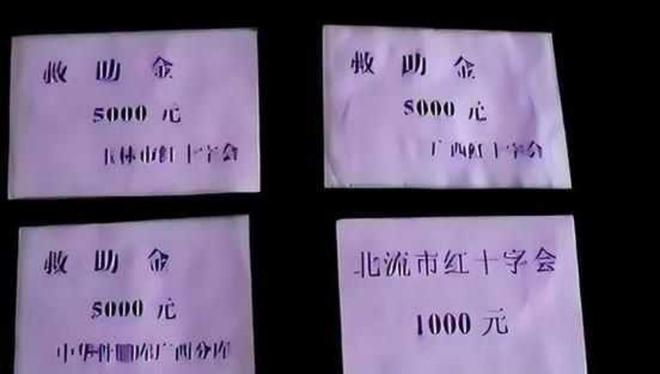 救助金
5000元
玉林市红十字会
救助金
5000元
广西红十字会
救助金
5000元
中华骨髓库广西分库
北流市红十字会
1000元